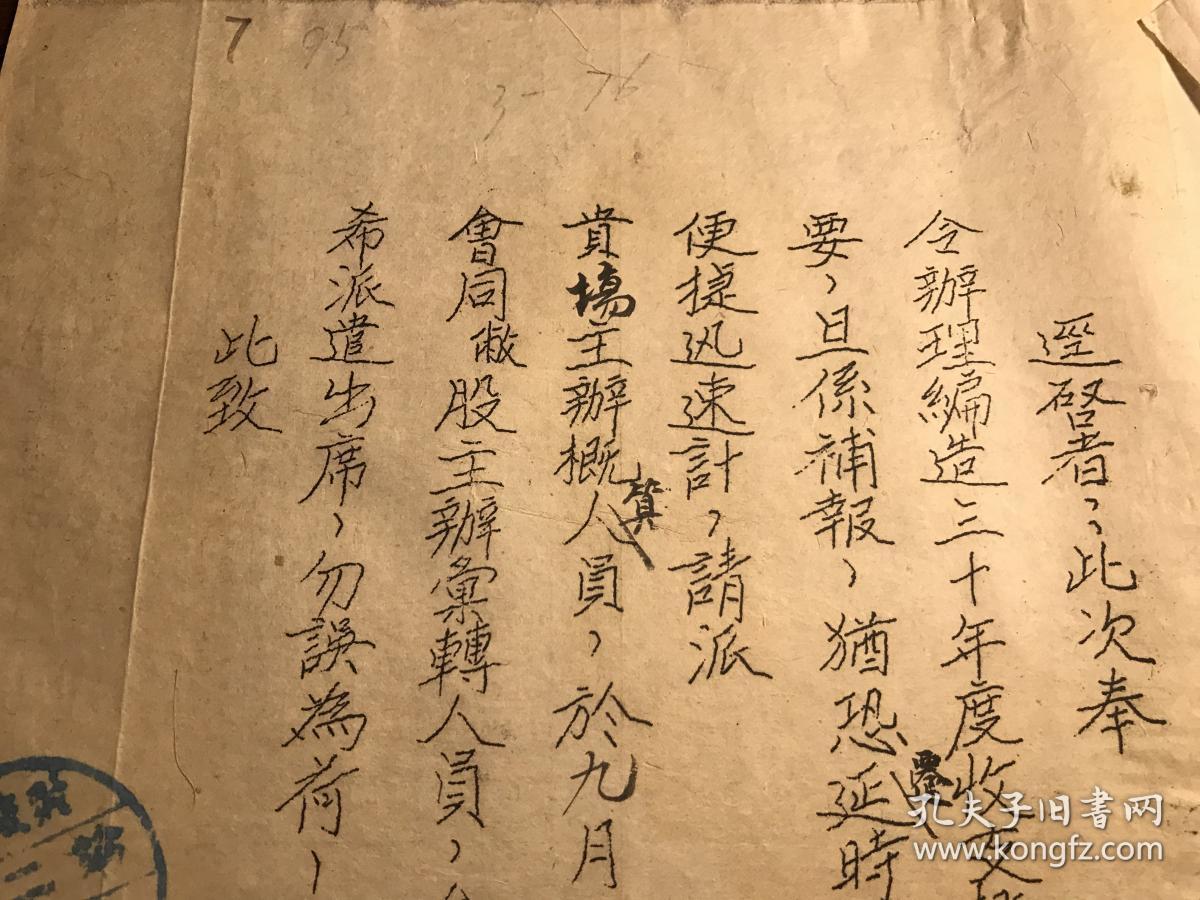 7 95
3-76
逕啓者，此次奉
令辦理編造三十年度收支
要，且係補報，猶恐延時
便捷迅速計，請派
貴場主辦概算人員，於九月
會同敝股主辦彙轉人員，
希派遣出席，勿誤為荷！
此致
孔夫子旧书网
www.kongfz.com